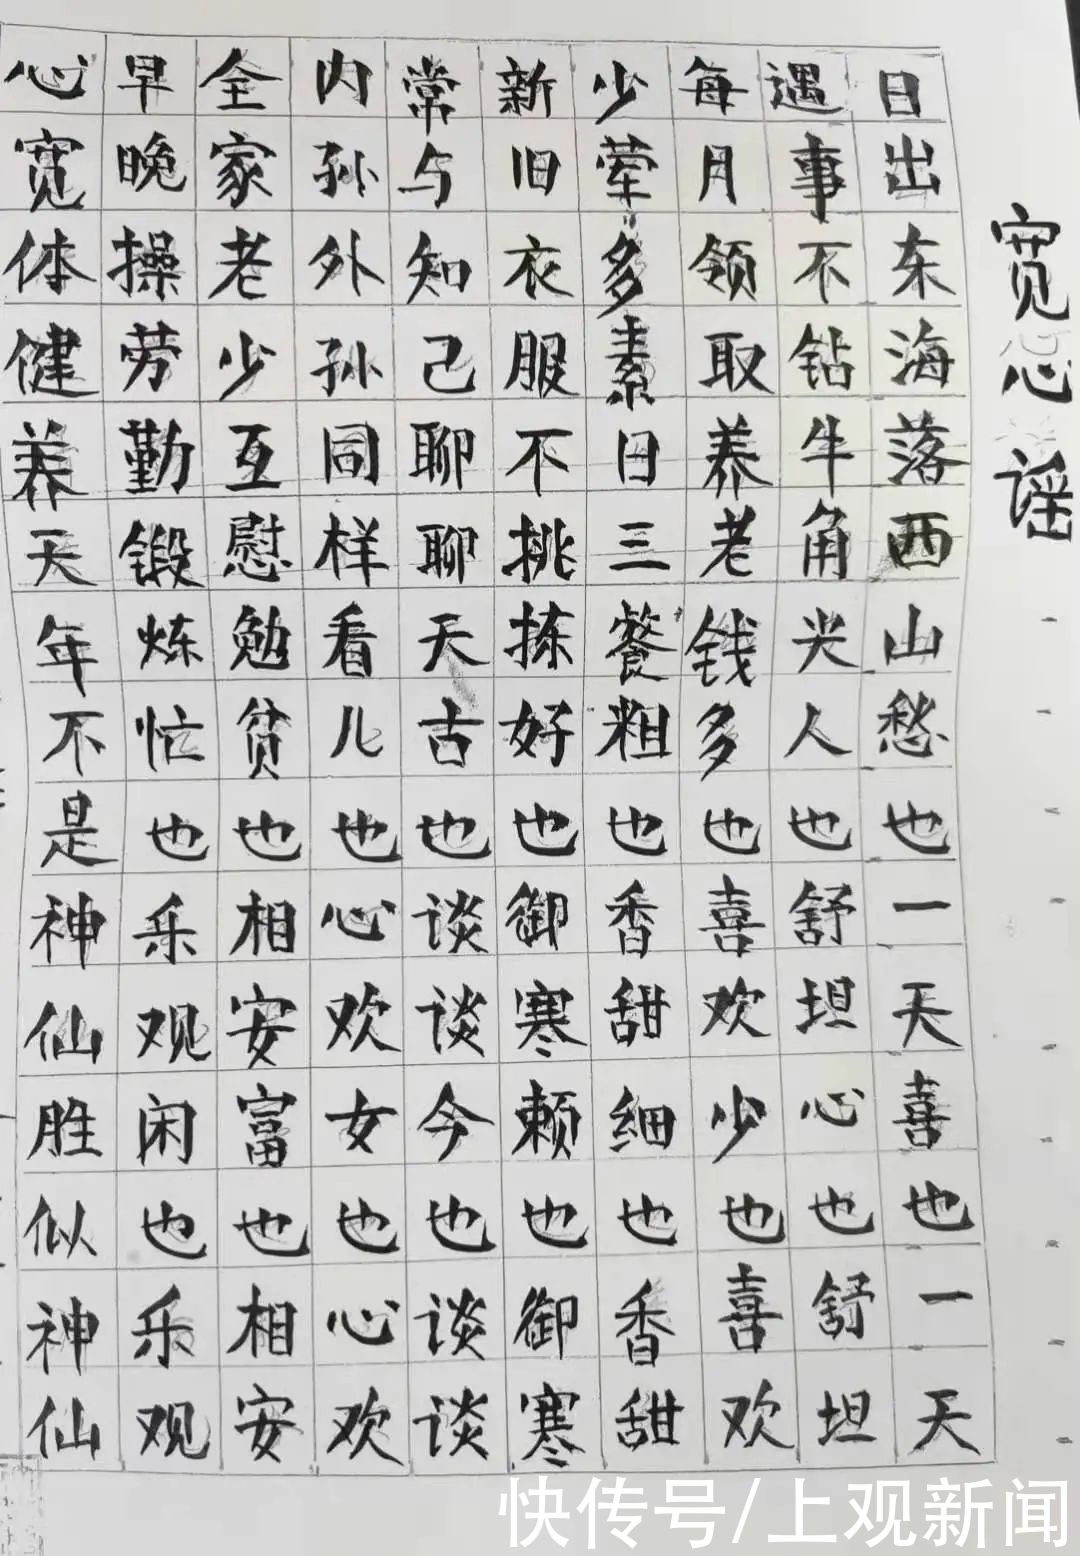 宽心谣
日出东海落西山愁也一天喜也一天
遇事不钻牛角尖人也舒坦心也舒坦
每月领取养老钱多也喜欢少也喜欢
少荤多素日三餐粗也香甜细也香甜
新旧衣服不挑拣好也御寒赖也御寒
常与知己聊聊天古也谈谈今也谈谈
内孙外孙同样看儿也心欢女也心欢
全家老少互慰勉贫也相安富也相安
早晚操劳勤锻炼忙也乐观闲也乐观
心宽体健养天年不是神仙胜似神仙
快传号/上观新闻